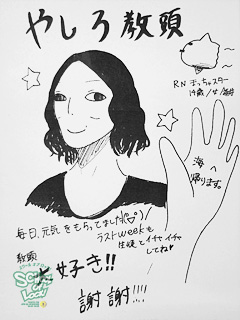 やしろ教頭
RN ぼっちゃスター
19歳/女/福井
海へ
帰ります。
毎日、元気をもらってました
ラストweekも
生徒とイチャイチャ
してね♡
教頭
大好き!!
謝謝!!!!